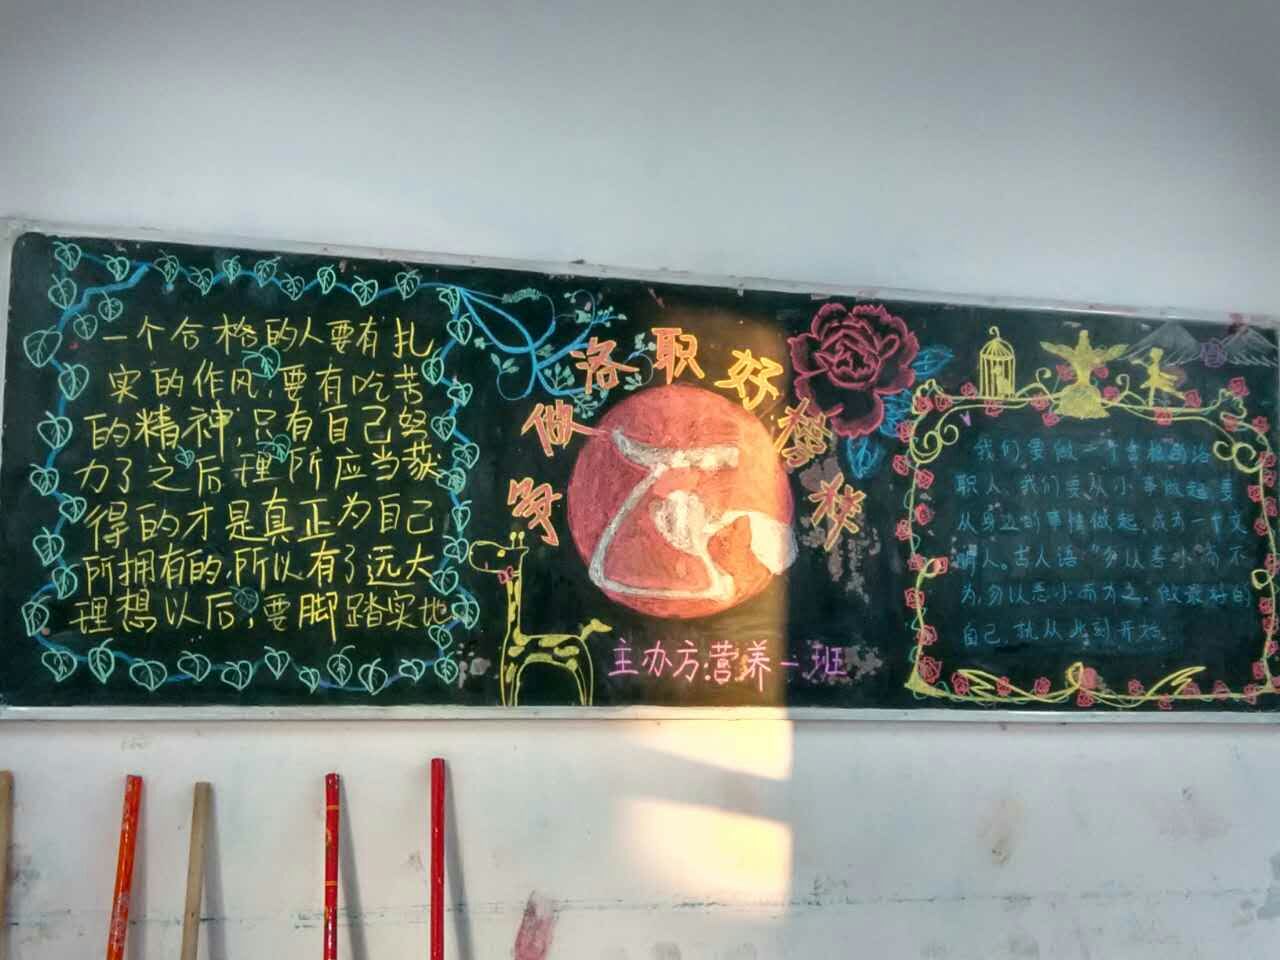 一个合格的人要有扎
实的作风,要有吃苦
的精神,只有自己努
力了之后理所应当获
得的才是真正为自己
所拥有的,所以有了远大
理想以后,要脚踏实地
争做洛职好榜样
主办方:营养一班
我们要做一个合格的洛
职人,我们要从小事做起,要
从身边的事情做起,成为一个文
明人。古人语"勿以善小而不
为,勿以恶小而为之,做最好的
自己,就从此刻开始。